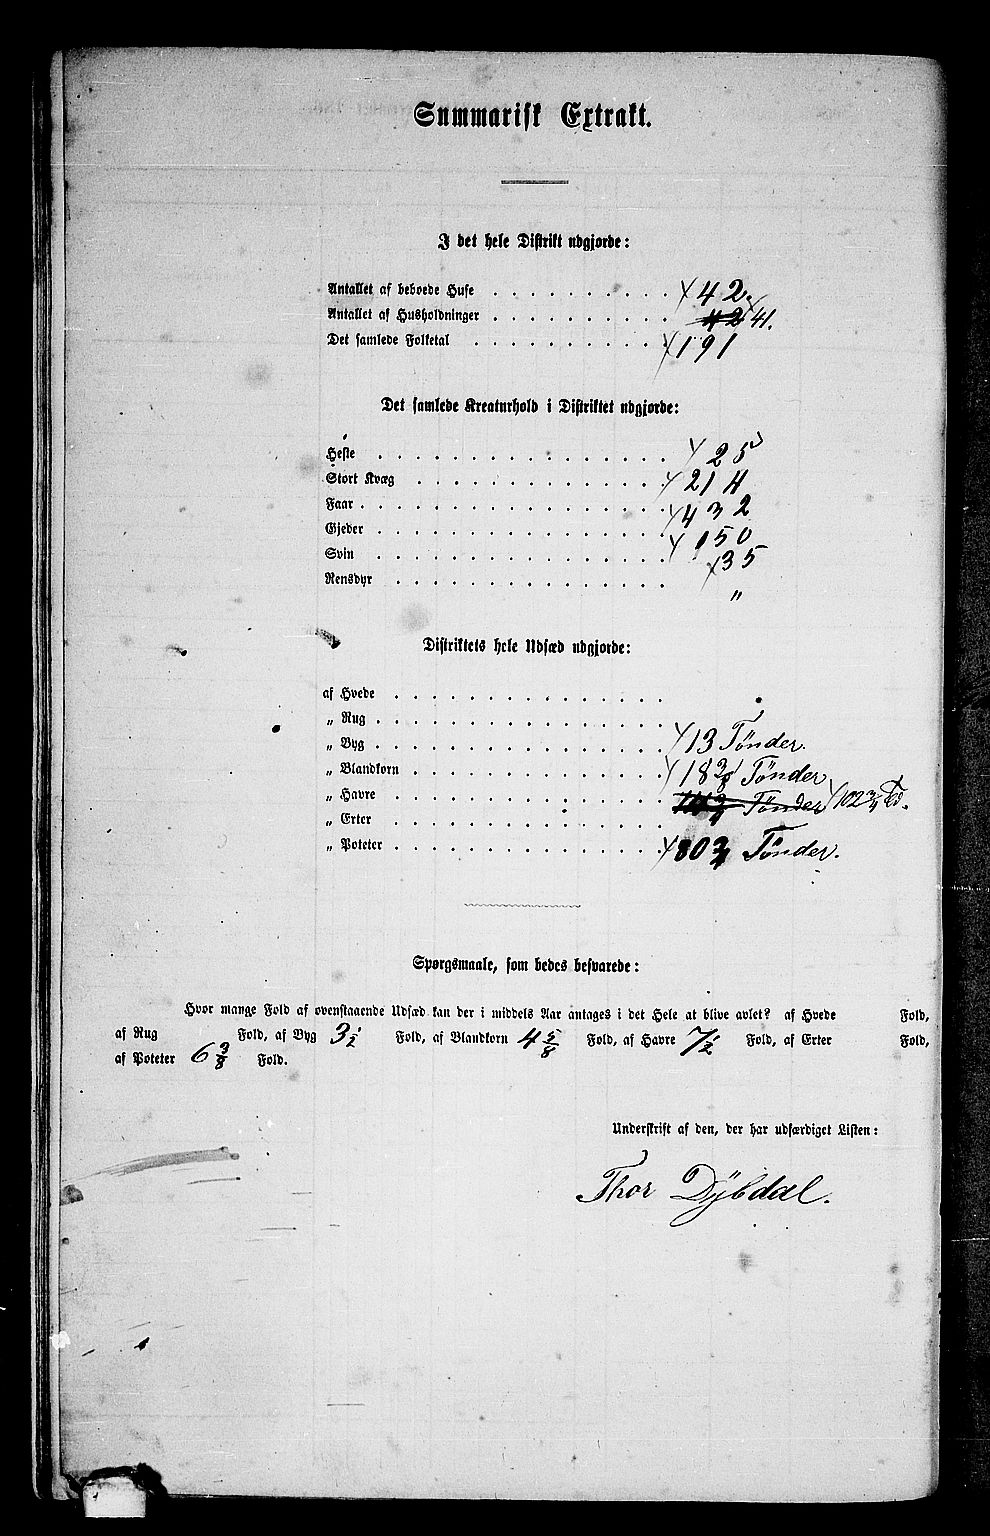 Summarisk Extrakt.
I det hele Distrikt udgjorde:
Antallet af beboede Huse . . . . . . . . . . . 42.
Antallet af Husholdninger . . . . . . . . . . . 42 41.
Det samlede Folketal . . . . . . . . . . . 191
Det samlede Kreaturhold i Distriktet udgjorde:
Heste . . . . . . . . . . . . . . 25
Stort Kvæg . . . . . . . . . . . . 214
Faar . . . . . . . . . . . . . . 432
Gjeder . . . . . . . . . . . . . . 150
Svin . . . . . . . . . . . . . . 35
Rensdyr . . . . . . . . . . . . . "
Distriktets hele Udsæd udgjorde:
af Hvede . . . . . . . . . . . . .
„ Rug . . . . . . . . . . . . . .
„ Byg . . . . . . . . . . . . . . 13 Tønder.
„ Blandkorn . . . . . . . . . . . . 18 Tønder
„ Havre . . . . . . . . . . . . . Tønder 102 3/4 Td.
„ Erter . . . . . . . . . . . . .
„ Poteter . . . . . . . . . . . . . 80 3/4 Tønder.
Spørgsmaale, som bedes besvarede:
Hvor mange Fold af ovenstaaende Udsæd kan der i middels Aar antages i det Hele at blive avlet? af Hvede Fold,
af Rug Fold, af Byg 3 1/2 Fold, af Blandkorn 4 5/8 Fold, af Havre 7 1/2 Fold, af Erter Fold,
af Poteter 6 3/8 Fold.
Underskrift af den, der har udfærdiget Listen:
Thor Dÿbdal.